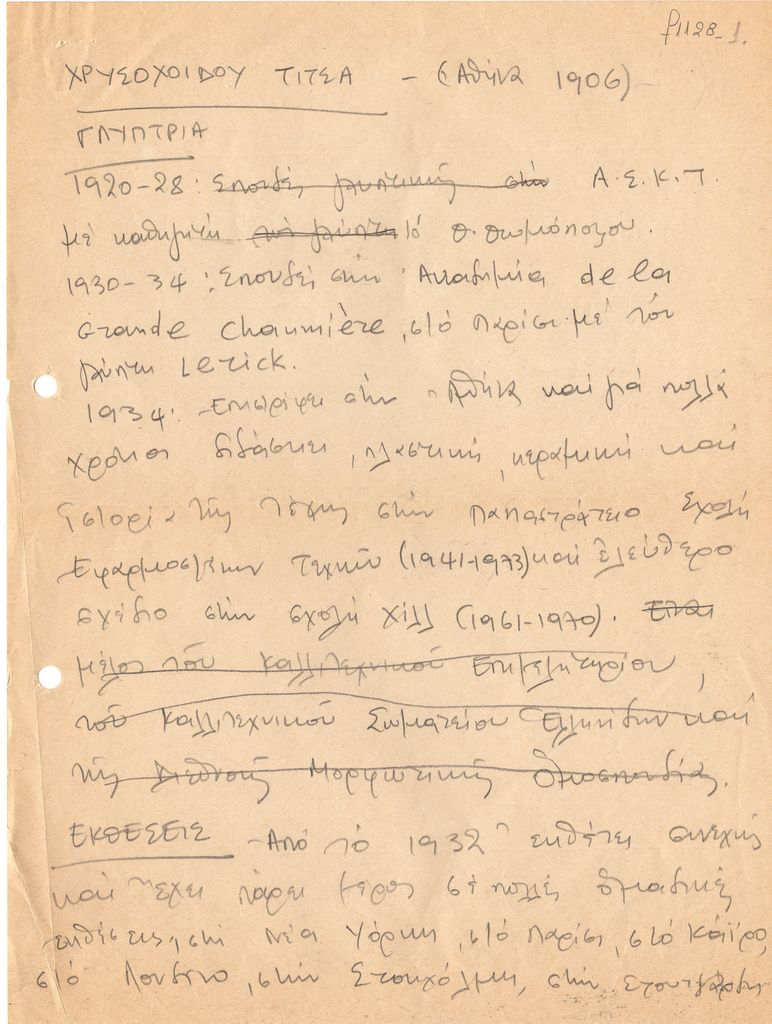 f1128-1.
ΧΡΥΣΟΧΟΙΔΟΥ ΤΙΤΣΑ - (Αθήνα 1906)
ΓΛΥΠΤΡΙΑ
1920-28: Σπουδές γλυπτικής στην Α.Σ.Κ.Τ.
μέ καθηγητή τό Θ. Θωμόπουλο.
1930-34: Σπουδές στην Ακαδημία de la
Grande Chaumière, στό Παρίσι μέ τόν
γλύπτη Lerick.
1934: Επιστρέφει στην Αθήνα καί γιά πολλά
χρόνια διδάσκει, πλαστική, κεραμική καί
ἱστορία της Τέχνης στην Παπαστράτειο Σχολή
Εφαρμοσμένων Τεχνών (1941-1973) καί ἐλεύθερο
σχέδιο στην σχολή Χίλλ (1961-1970). Είναι
μέλος τού Καλλιτεχνικού Επιμελητηρίου,
τού Καλλιτεχνικού Σωματείου Ελληνίδων καί
της Διεθνούς Μορφωτικής Ομοσπονδίας.
ΕΚΘΕΣΕΙΣ - Από τό 1932 εκθέτει συνεχώς
καί ἔχει πάρει μέρος σέ πολλές ὁμαδικές
εκθέσεις, στη Νέα Υόρκη, στό Παρίσι, στό Κάϊρο,
στό Λονδίνο, στην Στοκχόλμη, στην Στουτγάρδη